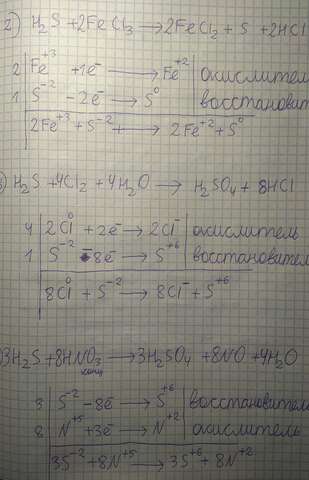 2) H₂S + 2FeCl₃ → 2FeCl₂ + S + 2HCl
2 | Fe⁺³ +1e⁻ → Fe⁺² | окислитель
1 | S⁻² -2e⁻ → S⁰ | восстановит
2Fe⁺³ + S⁻² + → 2Fe⁺² + S⁰
) H₂S + 4Cl₂ + 4H₂O → H₂SO₄ + 8HCl
4 | 2Cl⁰ + 2e⁻ → 2Cl⁻ | окислитель
1 | S⁻² - 8e⁻ → S⁺⁶ | восстановител
8Cl⁰ + S⁻² → 8Cl⁻ + S⁺⁶
) 3H₂S + 8HNO₃ → 3H₂SO₄ + 8NO + 4H₂O
конц
3 | S⁻² - 8e⁻ → S⁺⁶ | восстановител
8 | N⁺⁵ + 3e⁻ → N⁺² | окислитель
3S⁻² + 8N⁺⁵ → 3S⁺⁶ + 8N⁺²